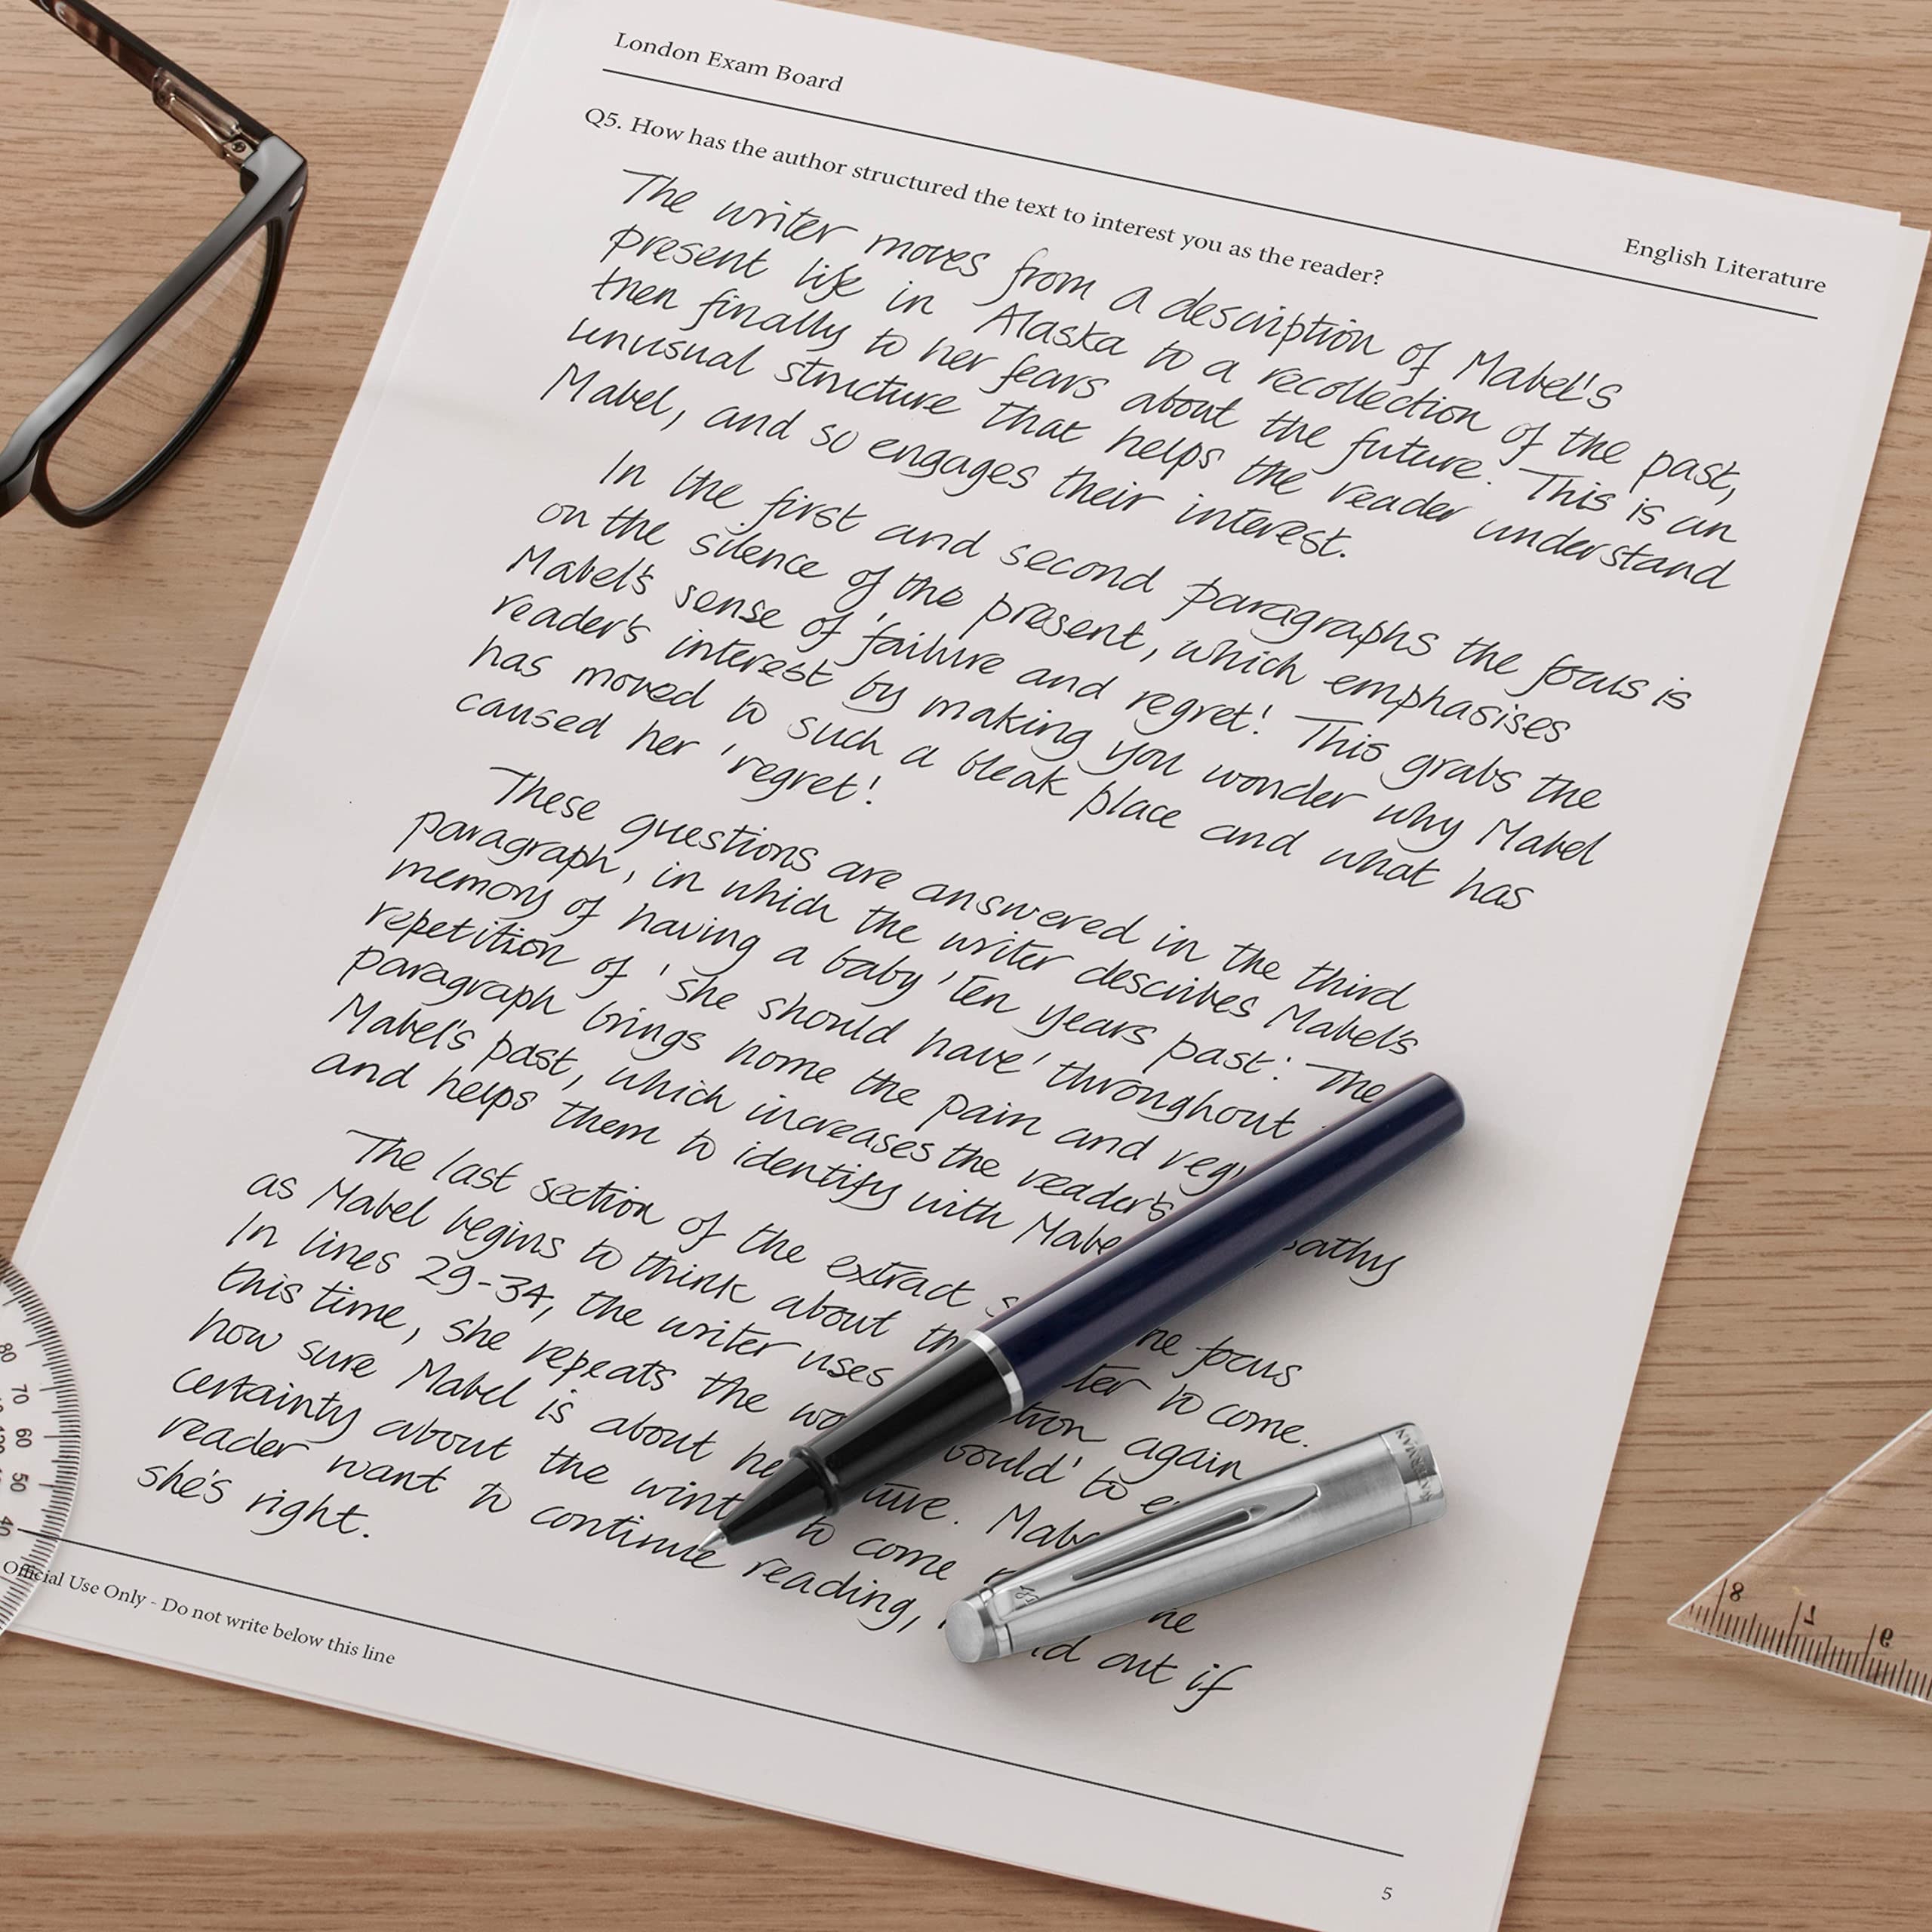 London Exam Board
English Literature
Q5. How has the author structured the text to interest you as the reader?
The writer moves from a description of Mabel's
present life in Alaska to a recollection of the past,
then finally to her fears about the future. This is an
unusual structure that helps the reader understand
Mabel, and so engages their interest.
In the first and second paragraphs the focus is
on the silence of the present, which emphasises
Mabel's sense of 'failure and regret'. This grabs the
reader's interest by making you wonder why Mabel
has moved to such a bleak place and what has
caused her 'regret'.
These questions are answered in the third
paragraph, in which the writer describes Mabel's
memory of having a baby 'ten years past'. The
repetition of 'she should have' throughout
paragraph brings home the pain and
Mabel's past, which increases the reader's
and helps them to identify with
The last section of the extract the focus
as Mabel begins to think about to come.
In lines 29-34, the writer uses again
this time, she repeats the would' to
how sure Mabel is about
certainty about the to come
reader want to continue reading, out if
she's right.
Official Use Only - Do not write below this line
5
WATERMAN
80
70
60
50
40
8
7
6